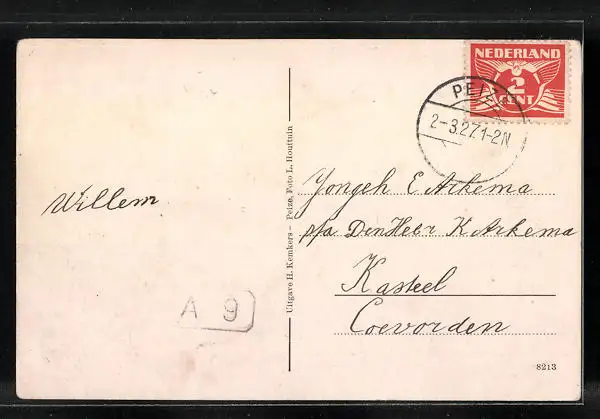 NEDERLAND
2
CENT
PEIZE
2-3.27.1-2N
Willem
Jongeh E Arkema
p/a Den Heer K Arkema
Kasteel
Coevorden
A 9
Uitgave H. Kemkers – Peize, Foto L. Houttuin
8213